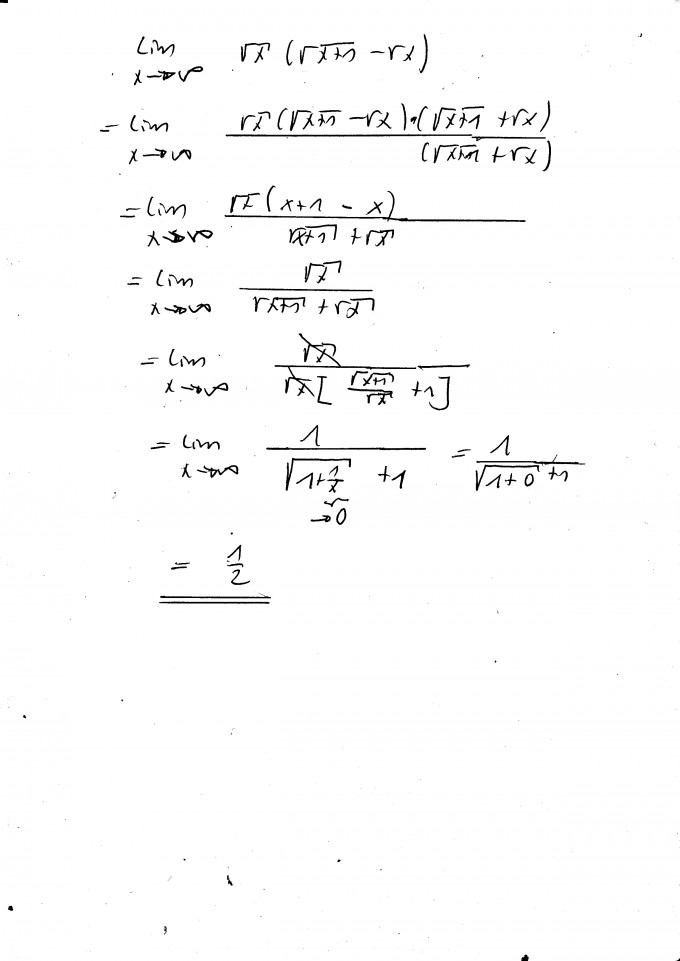 lim x→∞ √x (√x+1 − √x)
= lim x→∞ √x (√x+1 − √x)·(√x+1 + √x) / (√x+1 + √x)
= lim x→∞ √x (x+1 − x) / √x+1 + √x
= lim x→∞ √x / √x+1 + √x
= lim x→∞ √x / √x [ √x+1 / √x + 1 ]
= lim x→∞ 1 / √1+1/x + 1 = 1 / √1+0 + 1
→0
= 1/2